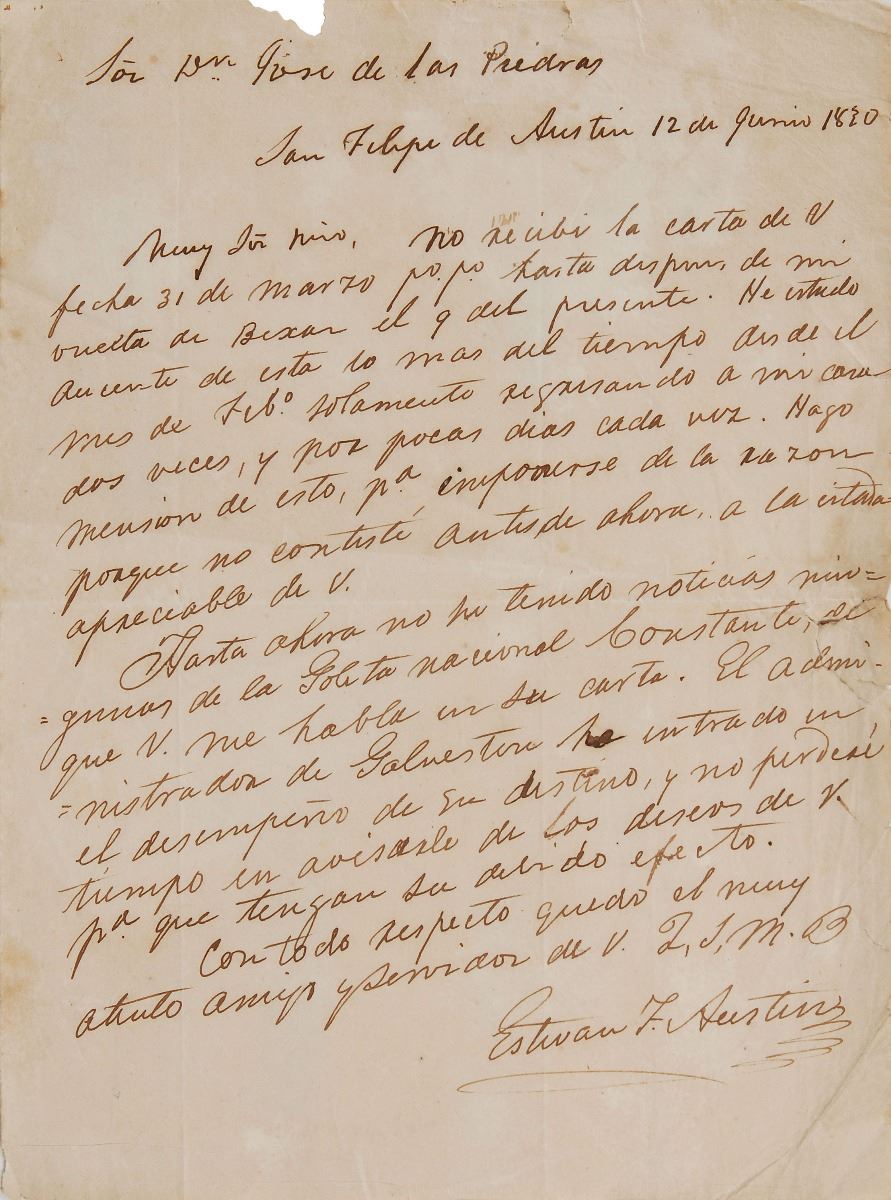 Sor Dn. Jose de las Piedras
San Felipe de Austin 12 de Junio 1830
Muy Sor mio, no recibi la carta de V
fecha 31 de Marzo po. po. hasta despues de mi
vuelta de Bexar el 9 del presente. He estado
aucente de esta lo mas del tiempo desde el
mes de Febo. solamente regresando a mi casa
dos veces, y por pocas dias cada vez. Hago
mension de esto, pa. imponerse de la razon
porque no contesté antes de ahora, a la citada
apreciable de V.
Hasta ahora no he tenido noticias nin=
=gunas de la Goleta nacional Constante, de
que V. me habla en su carta. El admi-
=nistrador de Galveston ha entrado en
el desempeño de su destino, y no perderé
tiempo en avisarle de los deseos de V.
pa. que tengan su debido efecto.
Con todo respecto quedo el muy
atento amigo y servidor de V. Q, S, M. B
Estevan F. Austin